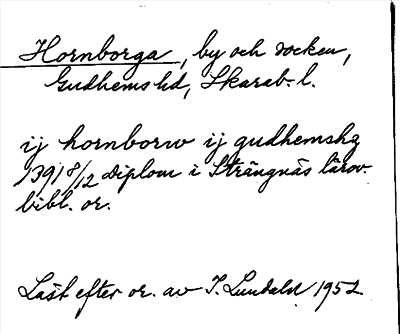 Hornborga, by och socken,
Gudhems hd, Skarab. l.
ij hornborw ij gudhemshz
1391 8/12 diplom i Strängnäs lärov.
bibl. or.
Läst efter or. av I. Lundahl 1952